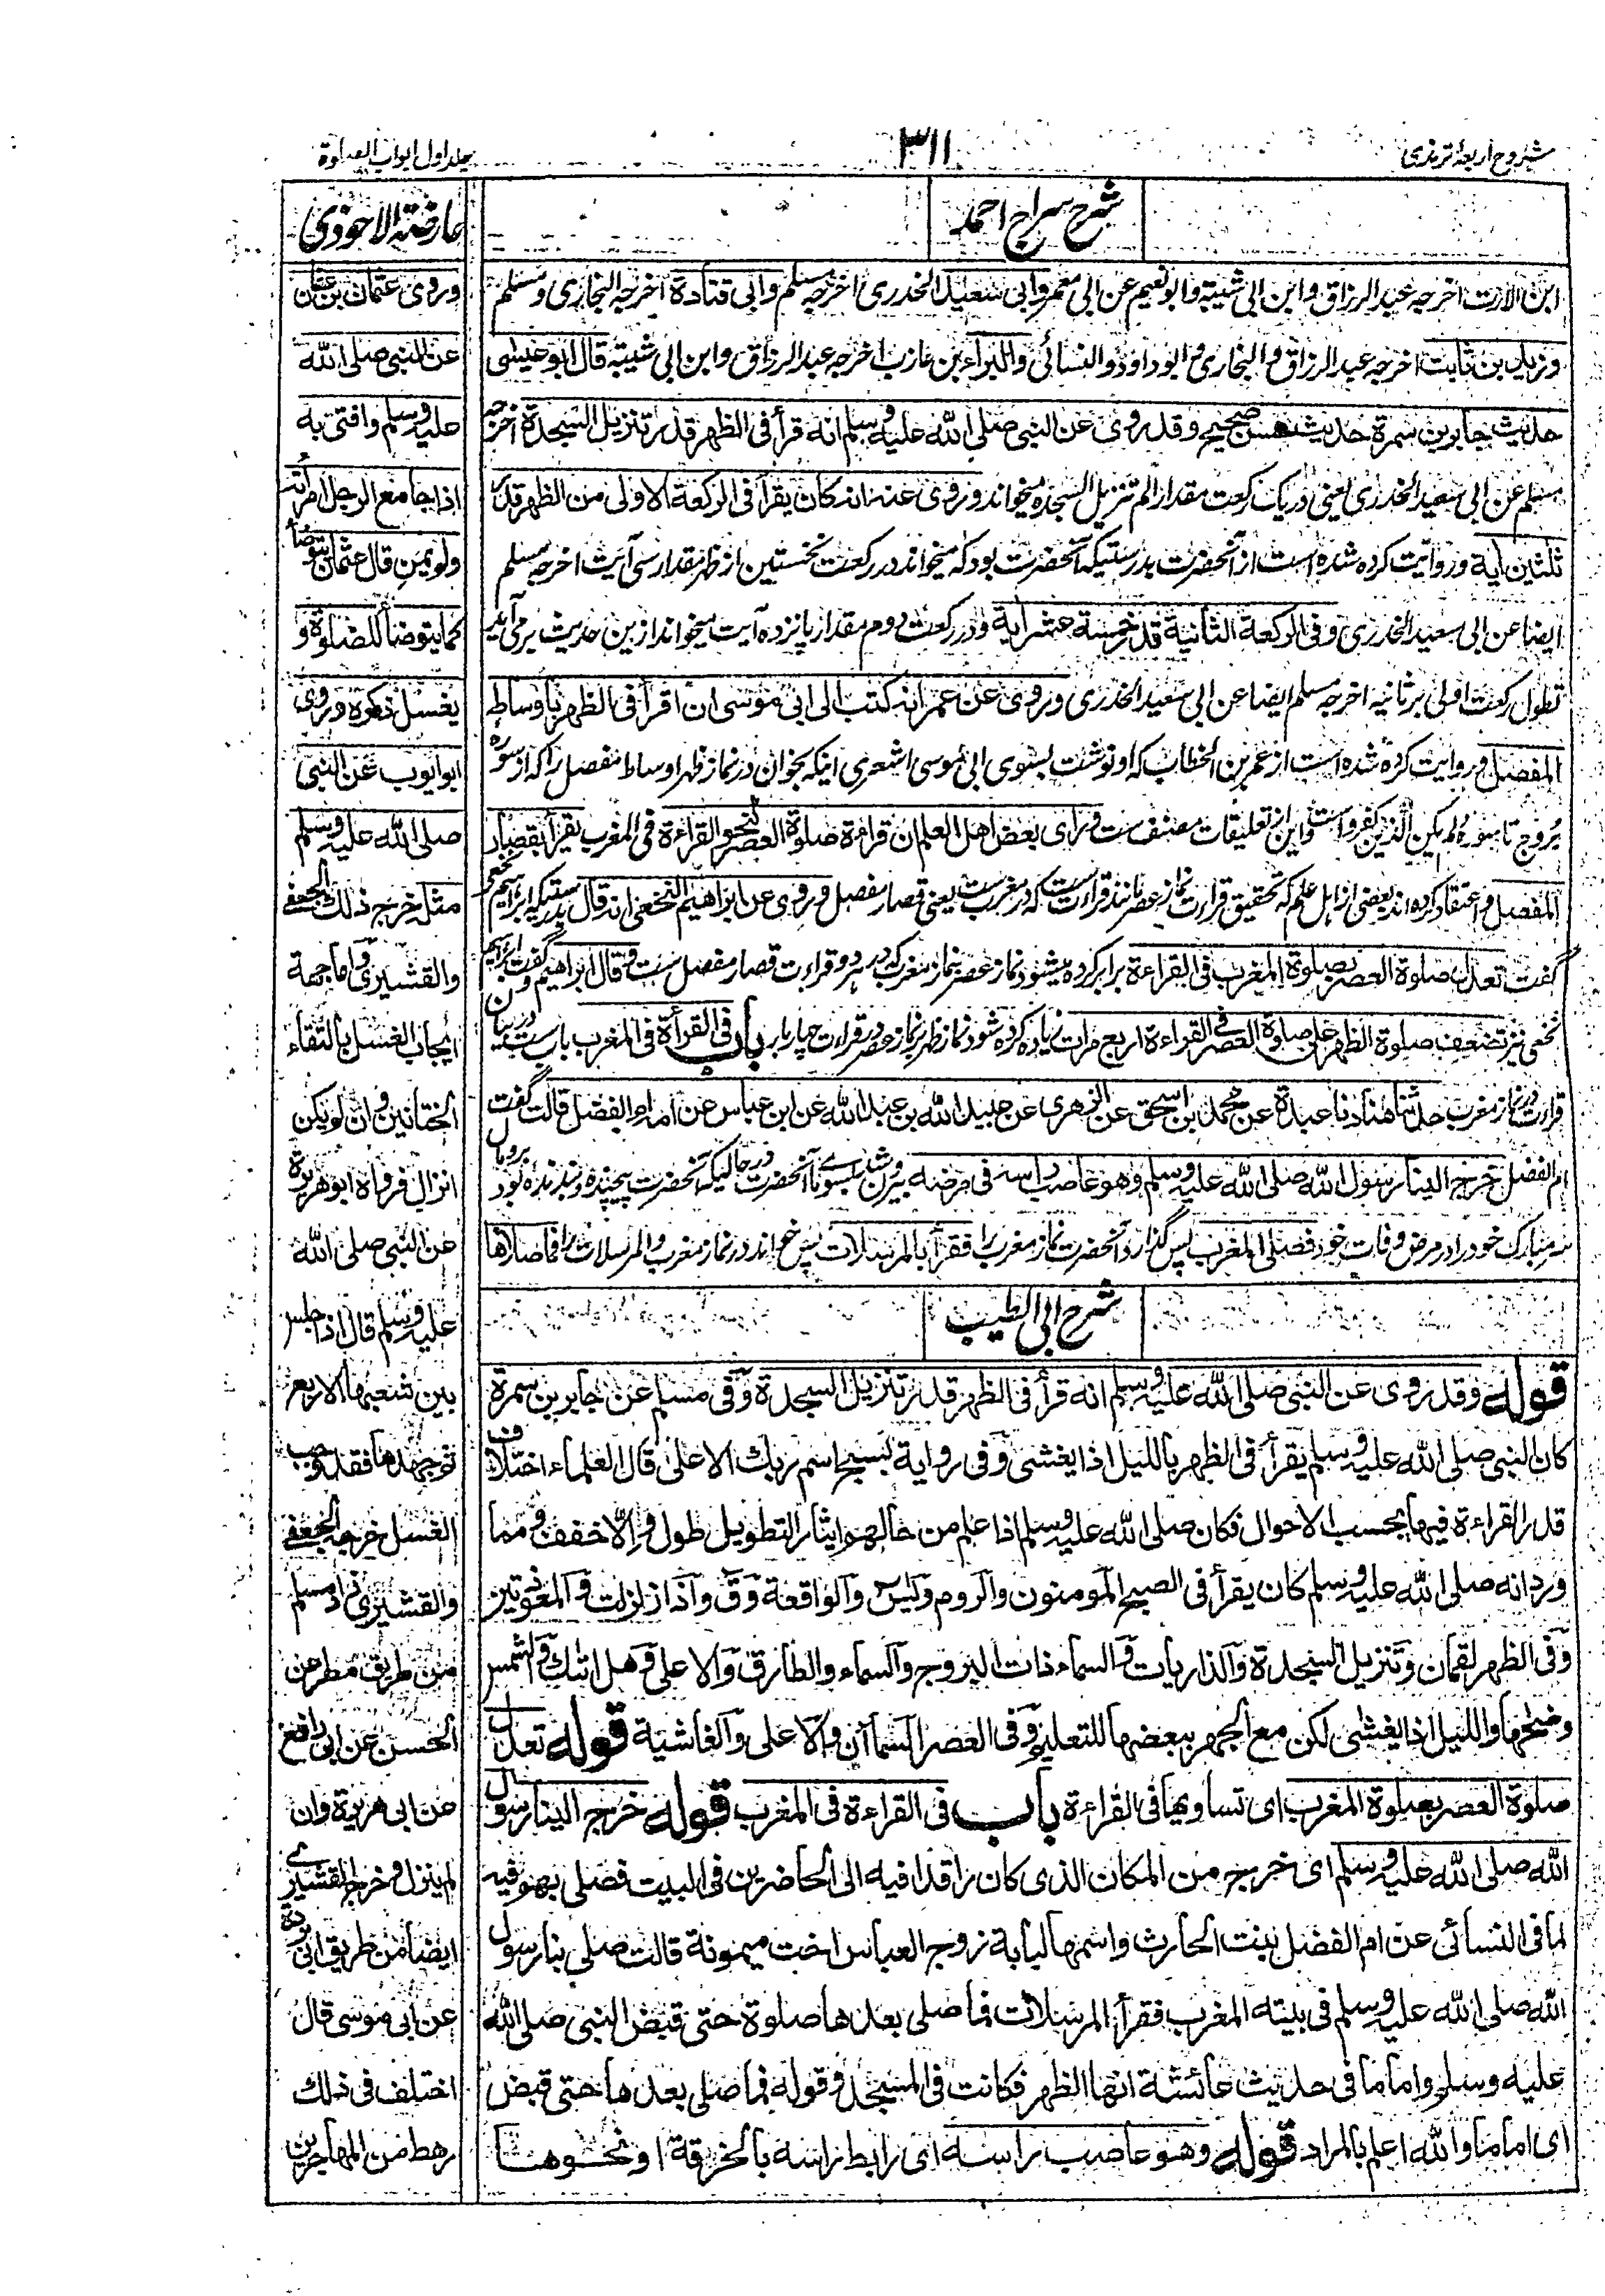 شروح اربعۂ ترمذی
۳۱۱
جلد اول ابواب الصلوة
شرح سراج احمد
ابن الارت اخرجه عبد الرزاق وابن ابی شیبة وابونعیم عن ابی معمر وابی سعید الخدری اخرجه مسلم وابی قتادة اخرجه البخاری ومسلم
وزید بن ثابت اخرجه عبد الرزاق والبخاری وابوداؤد والنسائی والبراء بن عازب اخرجه عبد الرزاق وابن ابی شیبة قال ابو عیسی
حدیث جابر بن سمرة حدیث حسن صحیح وقد روی عن النبی صلی الله علیه وسلم انه قرأ فی الظهر قدر تنزیل السجدة اخرجه
مسلم عن ابی سعید الخدری یعنی در یک رکعت مقدار الم تنزیل السجده میخواند وروی عنه انه کان یقرأ فی الرکعة الاولی من الظهر قدر
ثلثین آیة وروایت کرده شده است از آنحضرت بدرستیکه آنحضرت بود که میخواند در رکعت نخستین از ظهر مقدار سی آیت اخرجه مسلم
ایضا عن ابی سعید الخدری وفی الرکعة الثانیة قدر خمسة عشر آیة ودر رکعت دوم مقدار پانزده آیت میخواند ازین حدیث برمی آید
تطول رکعت اولی بر ثانیه اخرجه مسلم ایضا عن ابی سعید الخدری وروی عن عمر انه کتب الی ابی موسی ان اقرأ فی الظهر باوساط
المفصل وروایت کرده شده است از عمر بن الخطاب که او نوشت بسوی ابی موسی اشعری اینکه بخوان در نماز ظهر اوساط مفصل را که از سوره
بروج تا سوره لم یکن الذین کفروا است واین از تعلیقات مصنف ست ورای بعض اهل العلم ان قراءة صلوة العصر کنحو القراءة فی المغرب یقرأ بقصار
المفصل واعتقاد کرده اند بعضی از اهل علم که تحقیق قراءت نماز عصر مانند قراءت ست که در مغرب ست یعنی قصار مفصل وروی عن ابراهیم النخعی انه قال بدرستیکه ابراهیم نخعی
گفت تعدل صلوة العصر بصلوة المغرب فی القراءة برابر کرده میشود نماز عصر بنماز مغرب که در هر دو قراءت قصار مفصل ست وقال ابراهیم وگفت ابراهیم
نخعی نیز تضعف صلوة الظهر علی صلوة العصر فی القراءة اربع مرات زیاده کرده شود نماز ظهر بر نماز عصر در قراءت چهار بار باب فی القرأة فی المغرب باب ست در بیان
قراءت در نماز مغرب حدثنا هناد نا عبدة عن محمد بن اسحق عن الزهری عن عبید الله بن عبد الله عن ابن عباس عن امه ام الفضل قالت گفت
ام الفضل خرج الینا رسول الله صلی الله علیه وسلم وهو عاصب راسه فی مرضه بیرون شد بسوی ما آنحضرت در حالیکه آنحضرت پیچنده وبندنده بود
سر مبارک خود را در مرض وفات خود فصلی المغرب پس گذارد آنحضرت نماز مغرب را فقرأ بالمرسلات پس خواند در نماز مغرب والمرسلات را فما صلاها
شرح ابی الطیب
قوله وقد روی عن النبی صلی الله علیه وسلم انه قرأ فی الظهر قدر تنزیل السجدة وفی مسلم عن جابر بن سمرة
کان النبی صلی الله علیه وسلم یقرأ فی الظهر باللیل اذا یغشی وفی روایة بسبح اسم ربك الاعلی قال العلماء اختلاف
قدر القراءة فیها بحسب الاحوال فکان صلی الله علیه وسلم اذا علم من حالهم ایثار التطویل طول والا خفف ومما
ورد انه صلی الله علیه وسلم کان یقرأ فی الصبح المومنون والروم ویس والواقعة وق واذا زلزلت والمعوذتین
وفی الظهر لقمان وتنزیل السجدة والذاریات والسماء ذات البروج والسماء والطارق والاعلی وهل اتك والشمس
وضحها واللیل اذا یغشی لکن مع الجهر ببعضها للتعلیم وفی العصر السماآن والاعلی والغاشیة قوله تعدل
صلوة العصر بصلوة المغرب ای تساویها فی القراءة باب فی القراءة فی المغرب قوله خرج الینا رسول
الله صلی الله علیه وسلم ای خرج من المکان الذی کان راقدا فیه الی الحاضرین فی البیت فصلی بهم فیه
لما فی النسائی عن ام الفضل بنت الحارث واسمها لبابة زوج العباس اخت میمونة قالت صلی بنا رسول
الله صلی الله علیه وسلم فی بیته المغرب فقرأ المرسلات فما صلی بعدها صلوة حتی قبض النبی صلی الله
علیه وسلم واما ما فی حدیث عائشة انها الظهر فکانت فی المسجد وقوله فما صلی بعدها حتی قبض
ای اماما والله اعلم بالمراد قوله وهو عاصب راسه ای رابط راسه بالخرقة او نحوها
عارضة الاحوذی
وروی عثمان بن عفان
عن النبی صلی الله
علیه وسلم وافتی به
اذا جامع الرجل امرأته
ولم یمن قال عثمان یتوضأ
کما یتوضأ للصلوة و
یغسل ذکره وروی
ابو ایوب عن النبی
صلی الله علیه وسلم
مثله خرج ذلك الجعفی
والقشیری واما جهة
ایجاب الغسل بالتقاء
الختانین وان لم یکن
انزال فرواه ابو هریرة
عن النبی صلی الله
علیه وسلم قال اذا جلس
بین شعبها الاربع
ثم جهدها فقد وجب
الغسل خرجه الجعفی
والقشیری زاد مسلم
من طریق مطر عن
الحسن عن ابی رافع
عن ابی هریرة وان
لم ینزل وخرج القشیری
ایضا من طریق ابی بردة
عن ابی موسی قال
اختلف فی ذلك
رهط من المهاجرین